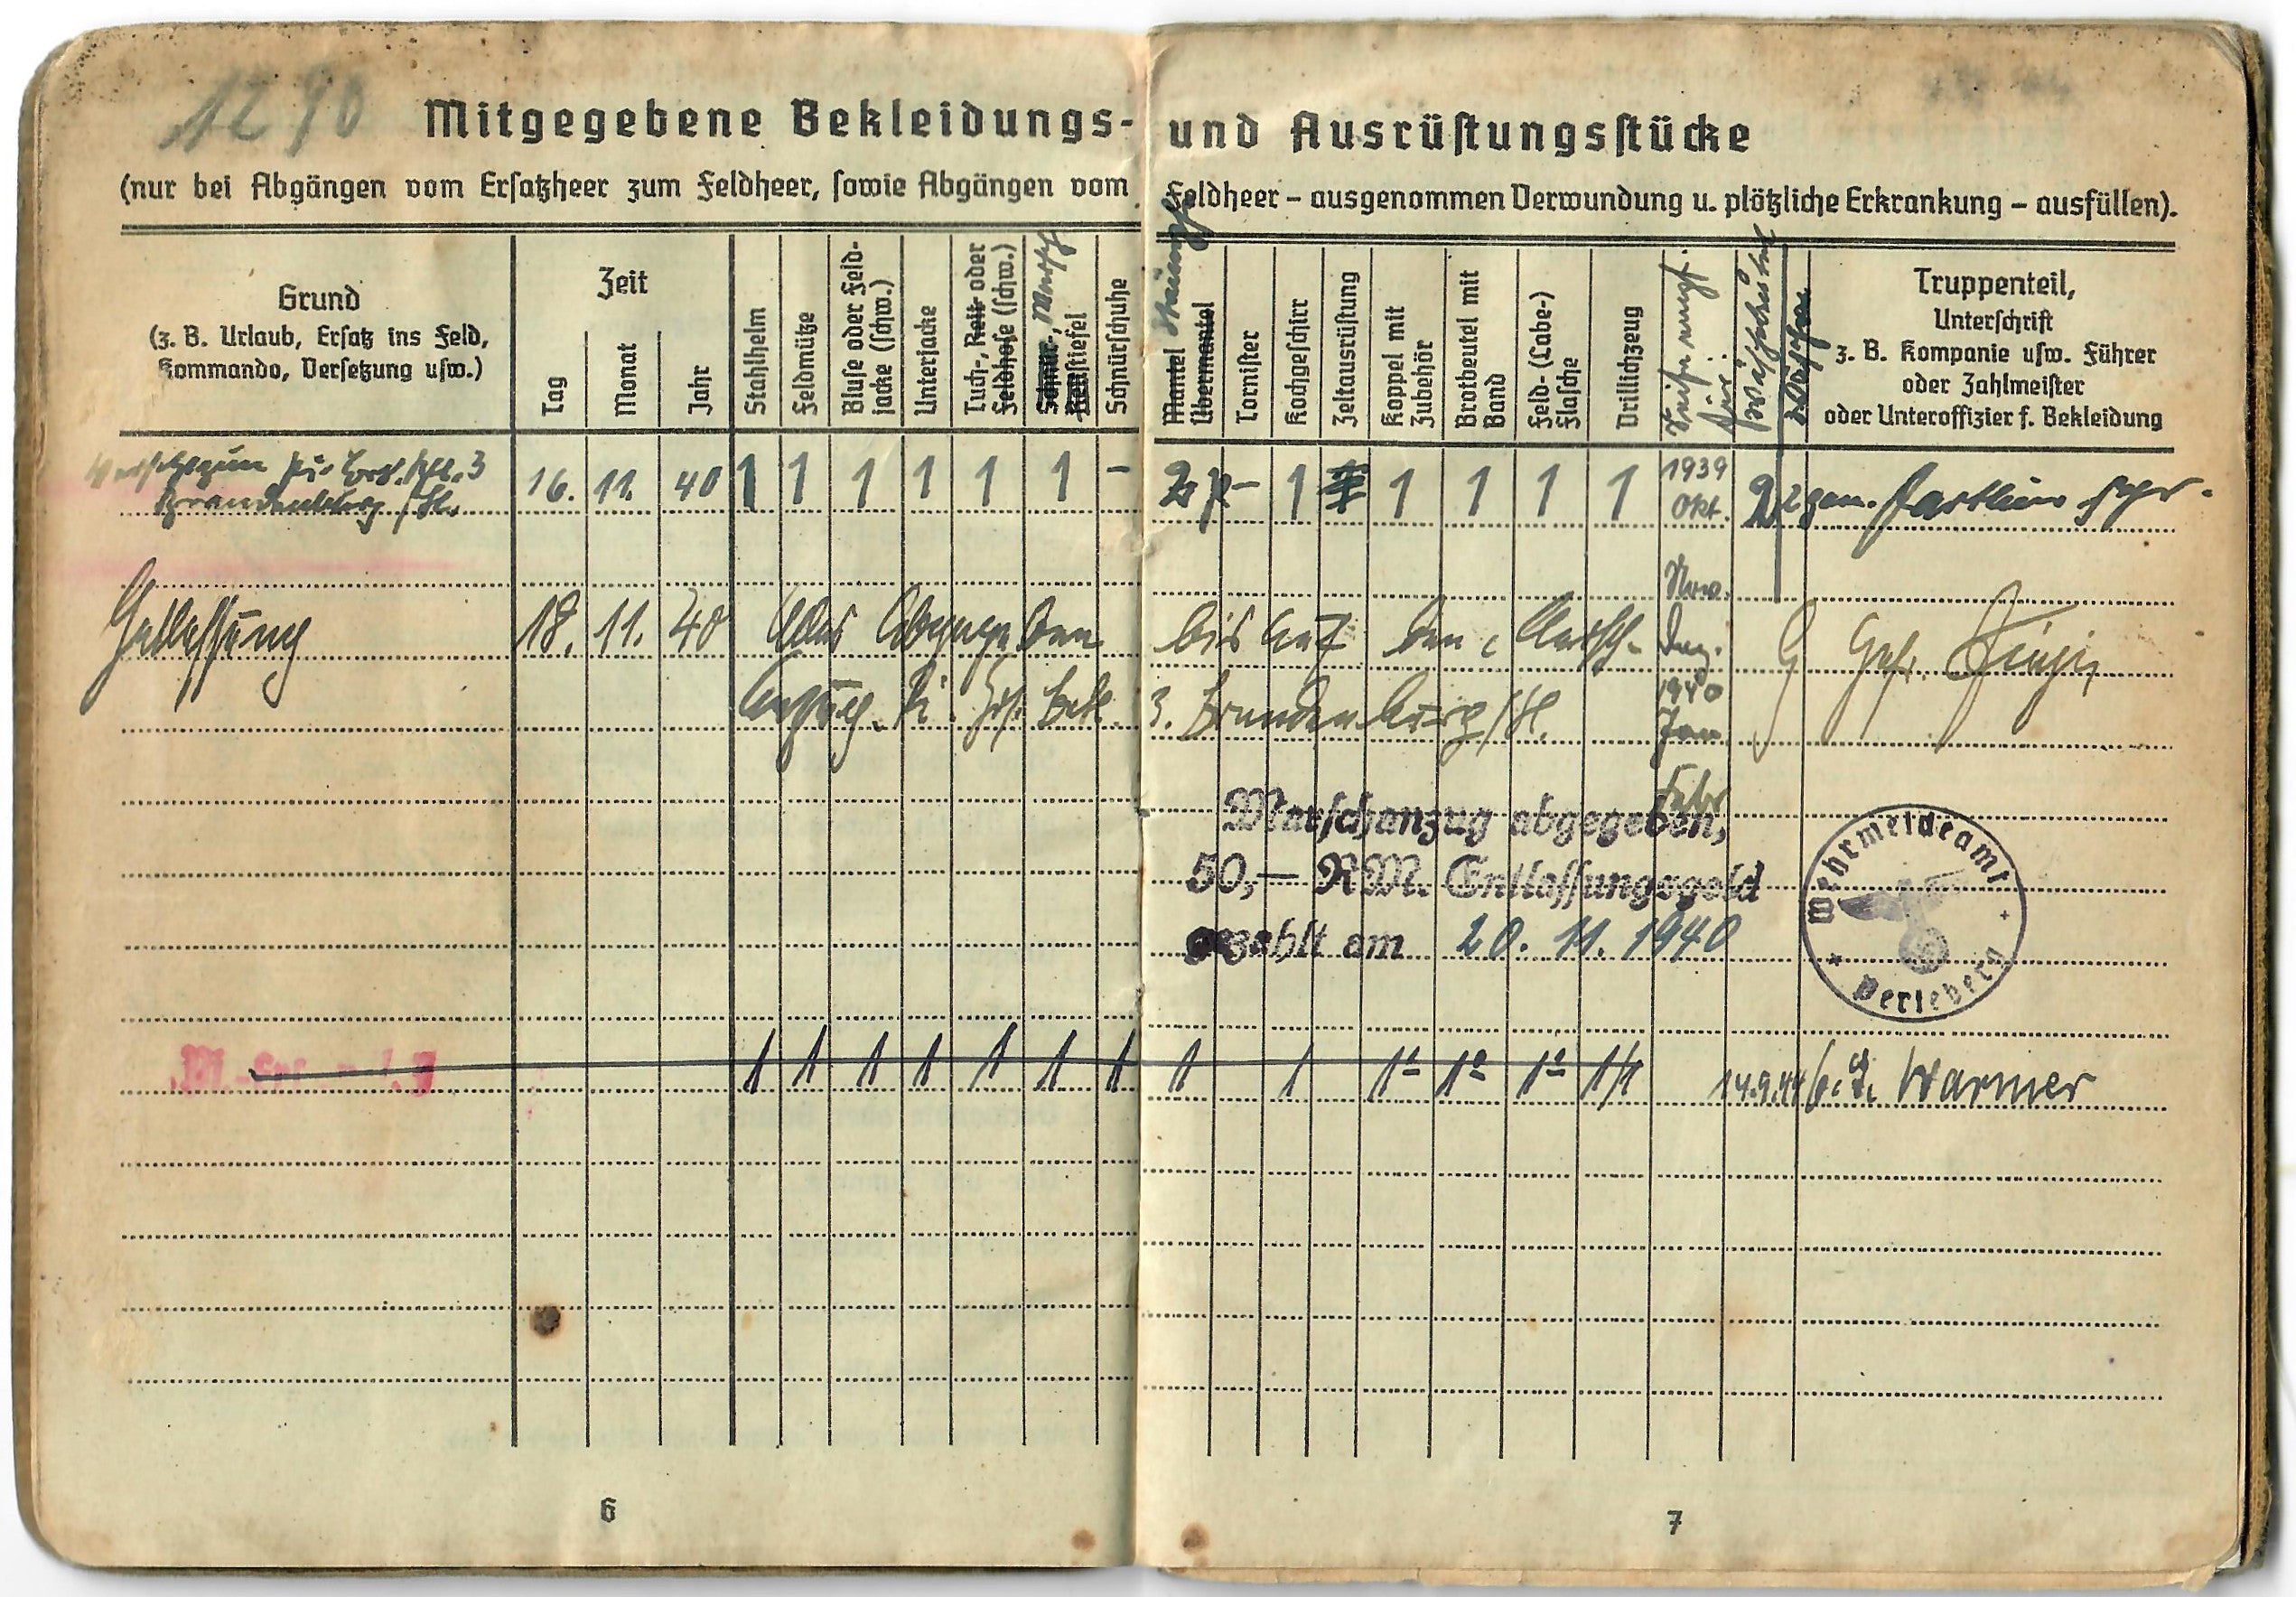 1290
Mitgegebene Bekleidungs- und Ausrüstungsstücke
(nur bei Abgängen vom Ersatzheer zum Feldheer, sowie Abgängen vom Feldheer – ausgenommen Verwundung u. plötzliche Erkrankung – ausfüllen).
Grund
(z. B. Urlaub, Ersatz ins Feld,
Kommando, Versetzung usw.)
Zeit
Tag
Monat
Jahr
Stahlhelm
Feldmütze
Bluse oder Feld-
jacke (schw.)
Unterjacke
Tuch-, Reit- oder
Feldhose (schw.)
Schnür-, Marsch
Reitstiefel
Schnürschuhe
Mantel
Übermantel
Tornister
Kochgeschirr
Zeltausrüstung
Koppel mit
Zubehör
Brotbeutel mit
Band
Feld- (Labe-)
Flasche
Drillichzeug
Truppenteil,
Unterschrift
z. B. Kompanie usw. Führer
oder Zahlmeister
oder Unteroffizier f. Bekleidung
3
Brandenburg /H. 16. 11. 40 1 1 1 1 1 1 – 2 – 1 1 1 1 1 1939 Okt. 2 2
Nov.
Entlassung 18. 11. 40 Alles abgegeben bis auf den Marsch- Dez. Gefr.
anzug. Pi. Ers. Batl. 3. Brandenburg/H. 1940 Jan
Febr
Marschanzug abgegeben,
50,— RM. Entlassungsgeld
gezahlt am 20. 11. 1940
Wehrmeldeamt
Perleberg
1 1 1 1 1 1 1 1 1 1 1 1 1/1 14.9.44 Warmer
6
7